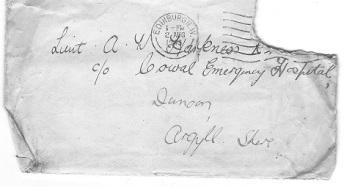 EDINBURGH.W.
1 - PM
Lieut. A. W. Harkness R.
c/o Cowal Emergency Hospital,
Dunoon,
Argyll. Shire